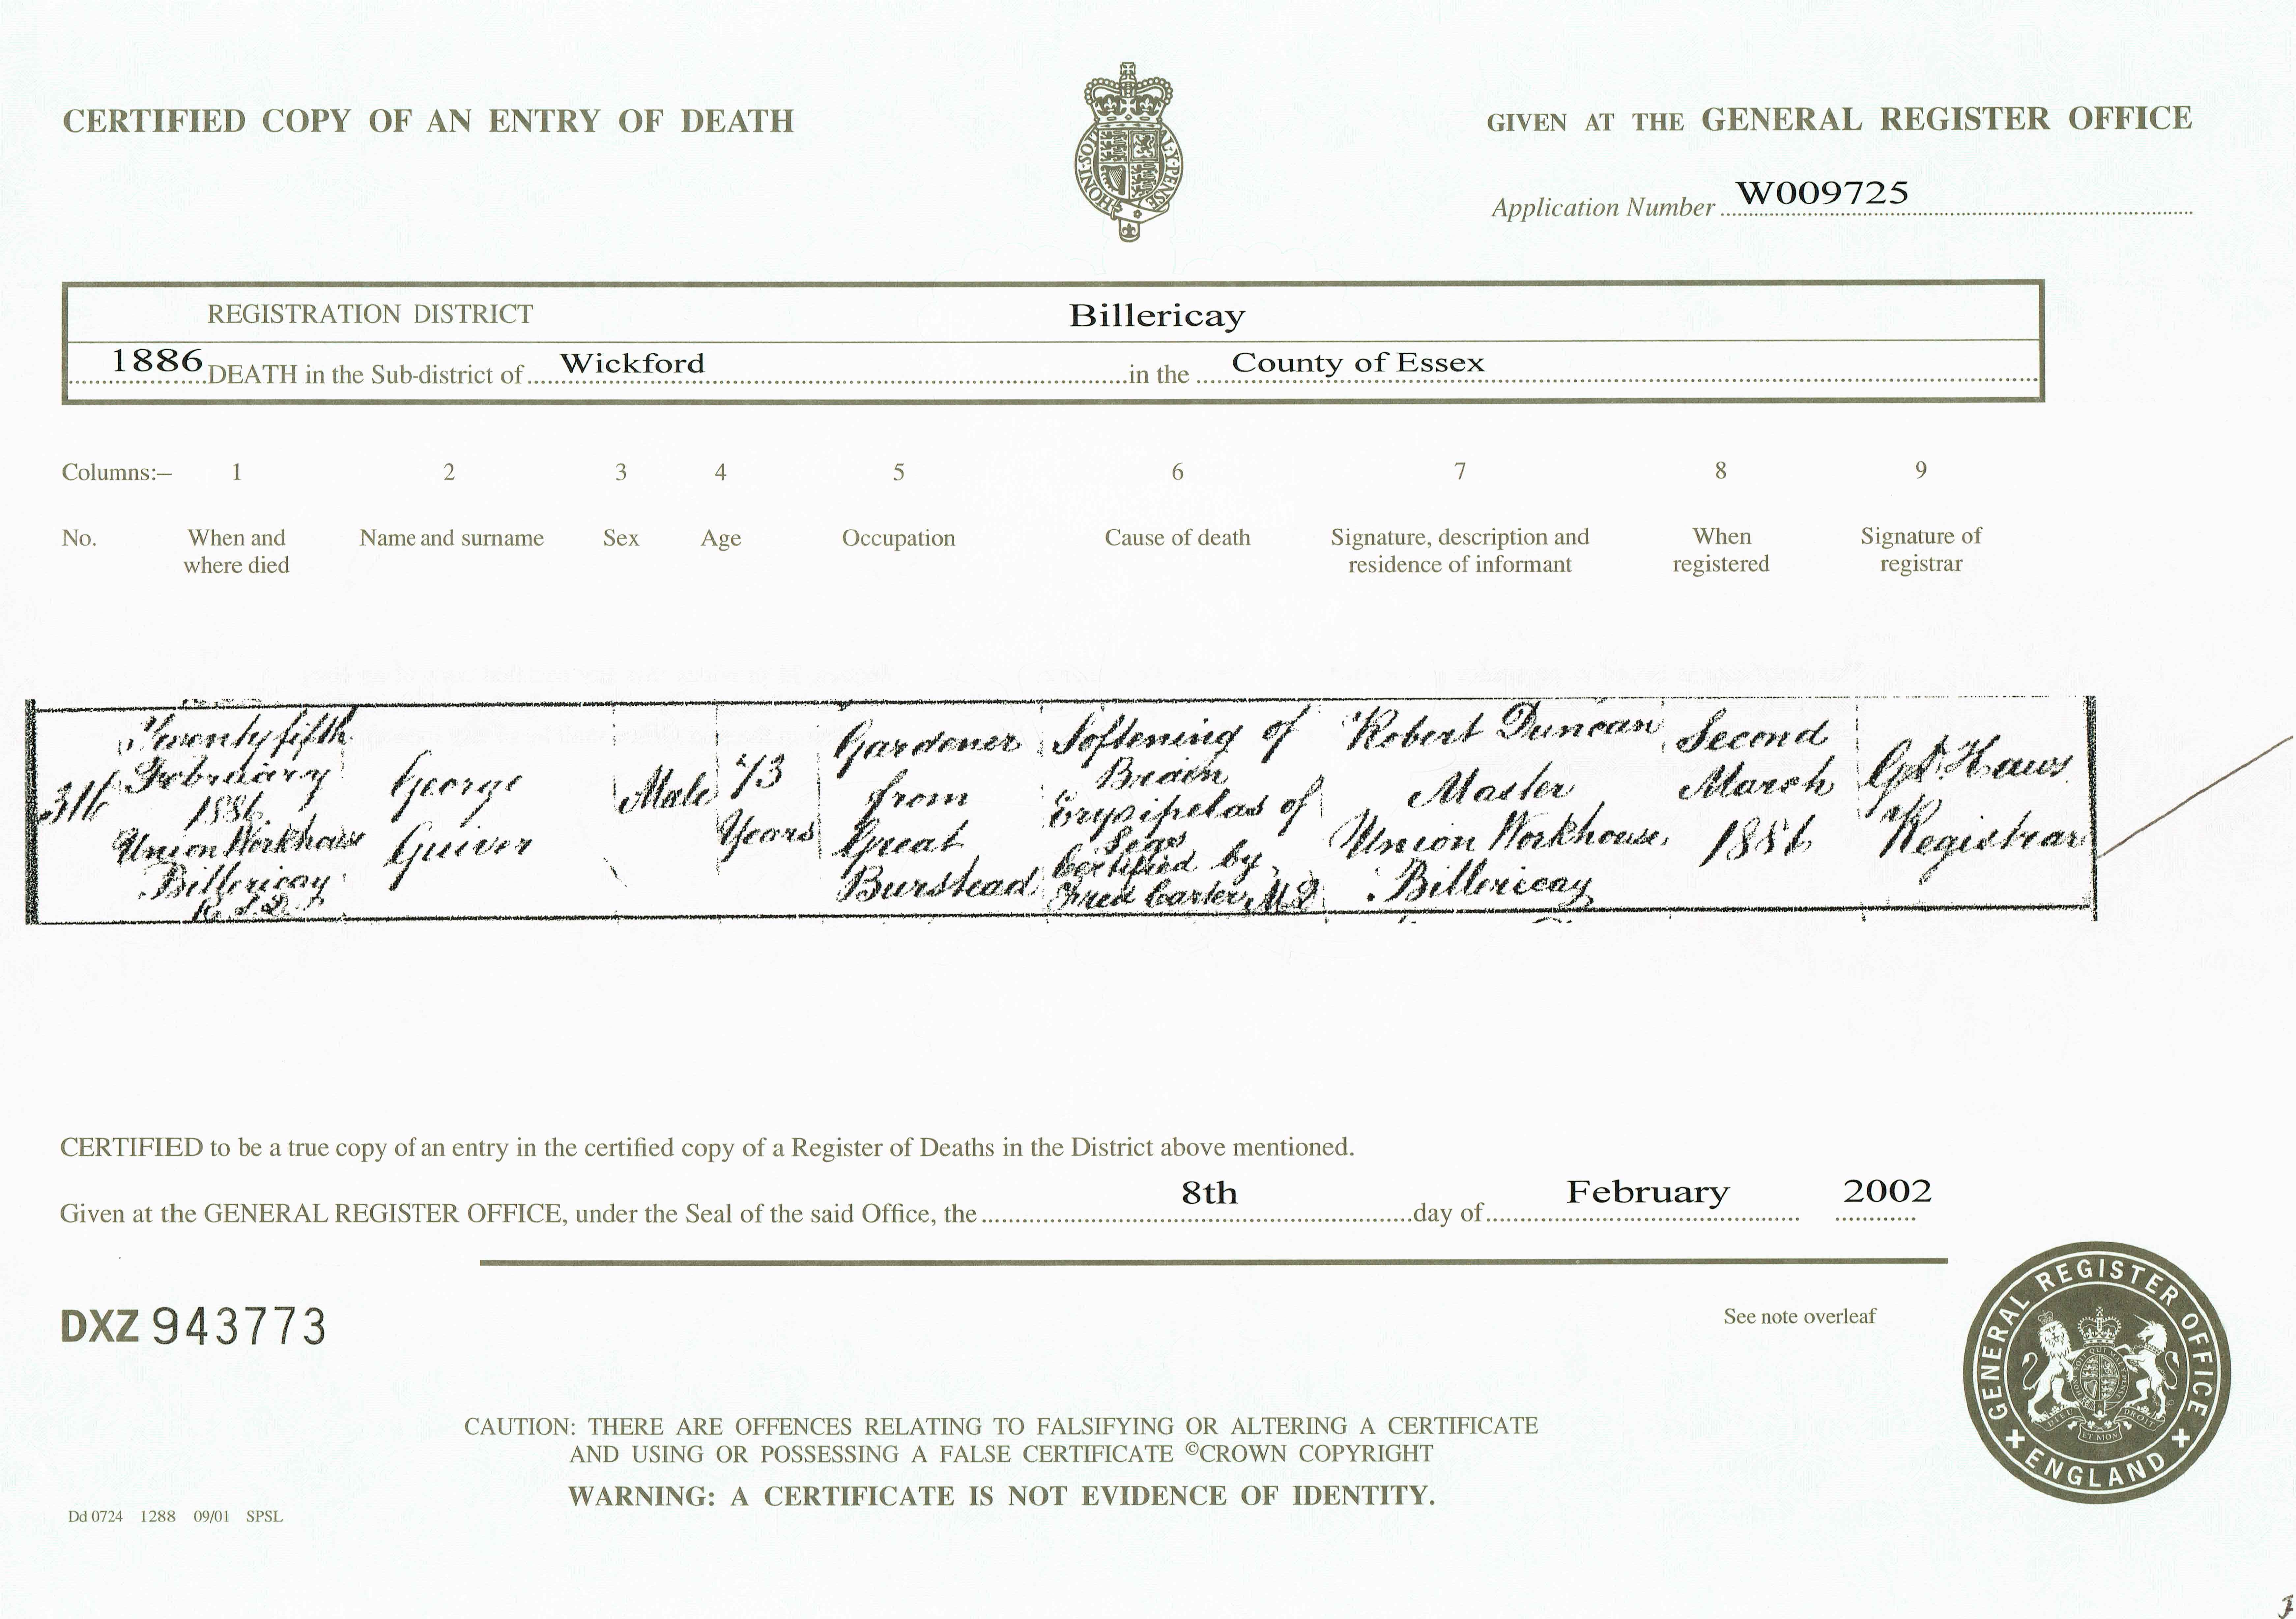 CERTIFIED COPY OF AN ENTRY OF DEATH
GIVEN AT THE GENERAL REGISTER OFFICE
Application Number W009725
REGISTRATION DISTRICT Billericay
1886 DEATH in the Sub-district of Wickford in the County of Essex
Columns:– 1 2 3 4 5 6 7 8 9
No. When and where died Name and surname Sex Age Occupation Cause of death Signature, description and residence of informant When registered Signature of registrar
316
Twenty fifth
February
1886
Union Workhouse
Billericay
George
Guiver
Male
73
Years
Gardener
from
Great
Burstead
Softening of
Brain
Erysipelas of
Legs
Certified by
Fred Carter, M.D.
Robert Duncan
Master
Union Workhouse,
Billericay
Second
March
1886
Registrar
CERTIFIED to be a true copy of an entry in the certified copy of a Register of Deaths in the District above mentioned.
Given at the GENERAL REGISTER OFFICE, under the Seal of the said Office, the 8th day of February 2002
DXZ 943773
See note overleaf
GENERAL REGISTER OFFICE
ENGLAND
CAUTION: THERE ARE OFFENCES RELATING TO FALSIFYING OR ALTERING A CERTIFICATE
AND USING OR POSSESSING A FALSE CERTIFICATE ©CROWN COPYRIGHT
WARNING: A CERTIFICATE IS NOT EVIDENCE OF IDENTITY.
Dd 0724 1288 09/01 SPSL